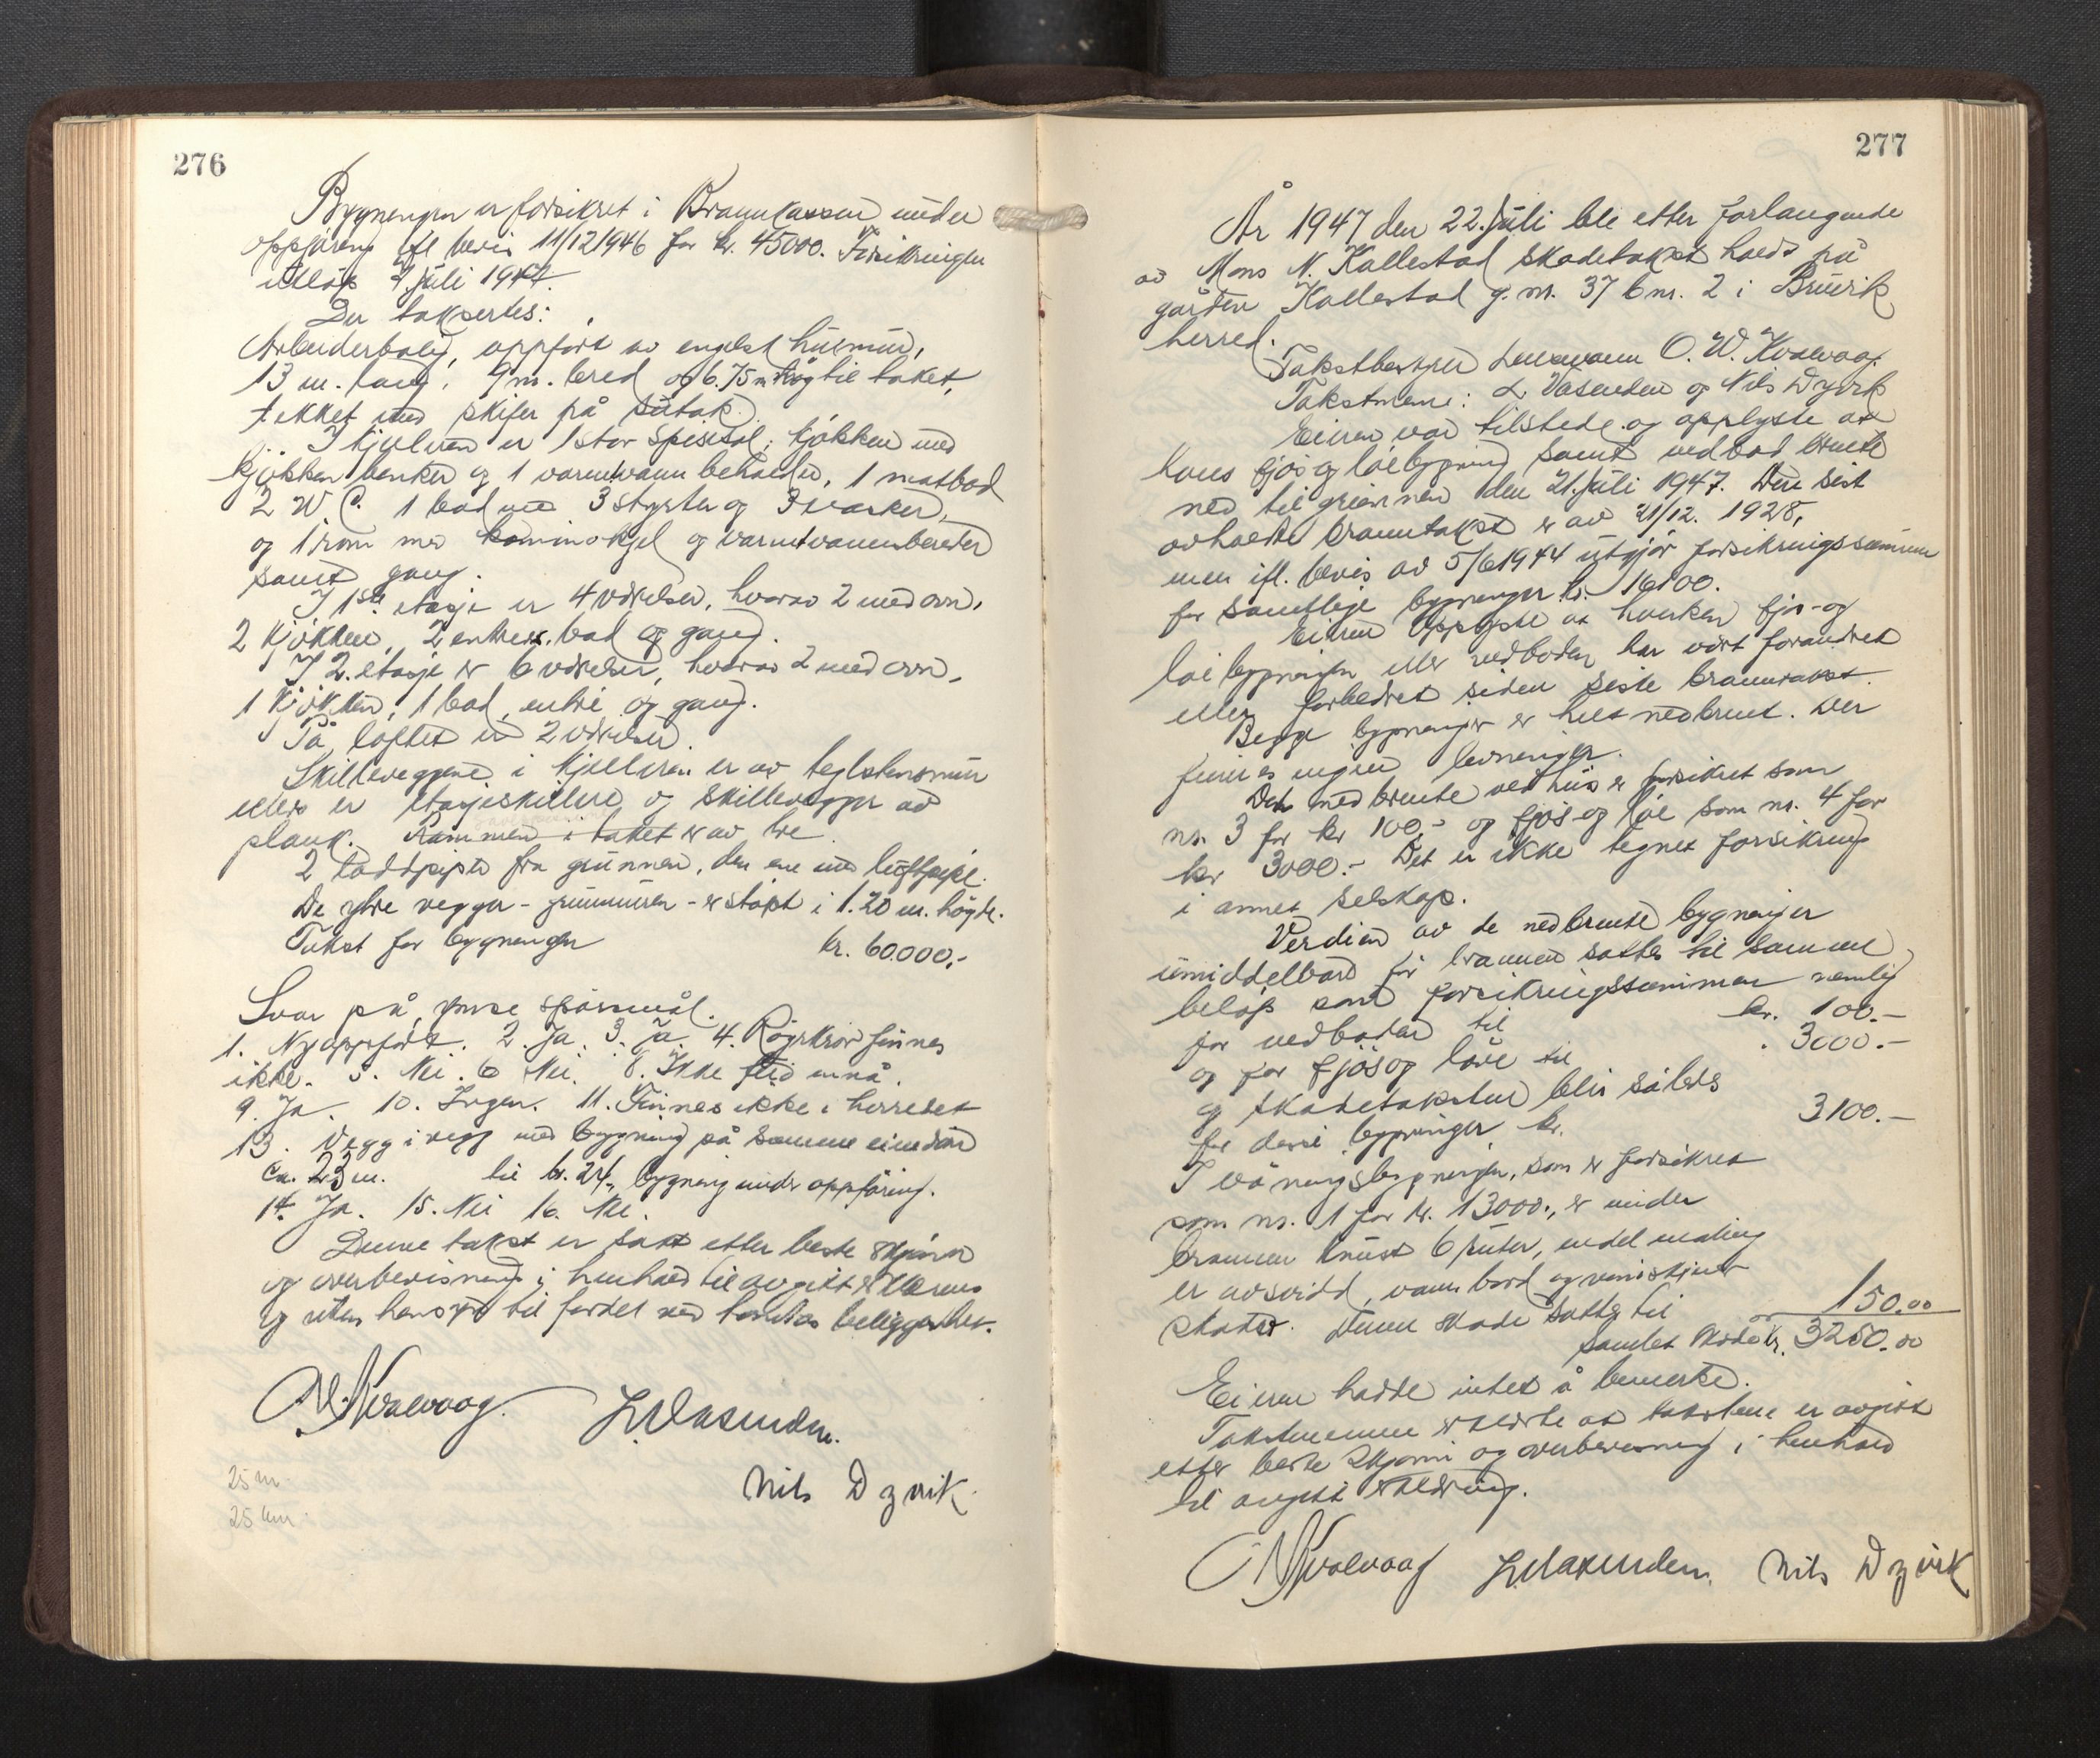 276
Bygningen er forsikret i Brannkassen under
oppføring ifl bevis 11/12 1946 for kr. 45000. Forsikringen
utløp 7. juli 1947.
Der taksertes:
Arbeiderbolig, oppført av engelsk husmur,
13 m. lang, 9 m. bred og 6.75 m høg til taket,
tekket med skifer på sutak.
I kjelleren er 1 stor spisesal, kjøkken med
kjøkkenbenker og 1 varmtvannbeholder, 1 matbod
2 W C. 1 bad med 3 styrter og 3 vasker,
og 1 rom med kaminokjel og varmtvannsbereder
samt gang.
I 1ste etasje er 4 værelser, hvorav 2 med ovn,
2 kjøkken, 2 entreer, bad og gang.
I 2. etasje er 6 værelser, hvorav 2 med ovn,
1 kjøkken, 1 bad, entre og gang.
På loftet er 2 værelser.
Skilleveggene i kjelleren er av teglstensmur
ellers er etasjeskillere og skillevegger av
plank. Rammen i taket er av tre
2 loddpiper fra grunnen, den ene med luftpipe.
De ytre vegger - grunnmuren - er støpt i 1.20 m. høgde.
Takst for bygningen kr. 60.000,-
Svar på spørsmål.
1. Nyoppført. 2. Ja. 3. Ja. 4. Røyrkrov finnes
ikke. 5. Nei. 6 Nei. 8. Ikke ennå.
9. Ja. 10. Ingen. 11. Finnes ikke i herredet
13. Vegg i vegg med bygning på samme eiendom
Ca. 23 m. til br. 24, bygning under oppføring.
14. Ja. 15. Nei 16. Nei.
Denne takst er satt etter beste skjønn
og overbevisning i henhold til avgitt
og uten hensyn til fordel ved tomtas beliggenhet.
O W Kvalvaag. L. Vasenden.
Nils Dyvik
25 m
25 km
277
År 1947 den 22. juli ble etter forlangende
av Mons N. Kallestad skadetakst holdt på
gården Kallestad g. nr. 37 b nr. 2 i Bruvik
herred.
Takstbestyrer Lensmann O. W. Kvalvaag.
Takstmenn: L. Vasenden og Nils Dyvik
Eieren var tilstede og opplyste at
hans fjøs og løebygning samt vedbod brente
ned til grunnen den 21. juli 1947. Den sist
avholdte branntakst er av 21/12. 1928,
men ifl. bevis av 5/6 1944 utgjør forsikringssummen
for samtlige bygninger kr. 16100.
Eieren opplyste at hverken fjøs- og
løebygningen eller vedboden har vært forandret
eller forbedret siden siste branntakst.
Begge bygninger er helt nedbrent. Der
finnes ingen levninger.
Det nedbrente vedhus er forsikret som
nr. 3 for kr 100,- og fjøs og løe som nr. 4 for
kr 3000.- Det er ikke tegnet forsikring
i annet selskap.
Verdien av de nedbrente bygninger
umiddelbart før brannen sattes til samme
beløp som forsikringssummen nemlig
for vedboden til kr. 100.-
og for fjøs og løe til " 3000.-
og skadetaksten blir således
for desse bygninger kr. 3100.-
I våningsbygningen, som er forsikret
som nr. 1 for kr. 13000., er under
brannen knust 6 ruter, endel maling
er avsvidd, vannbord og vindskjeer
skadet. Denne skade sattes til 150.00
Samlet skade kr. 3250.00
Eieren hadde intet å bemerke.
Takstmennene erklærte at takstene er avgitt
etter beste skjønn og overbevisning i henhold
til avgitt erklæring.
O W Kvalvaag L. Vasenden. Nils Dyvik